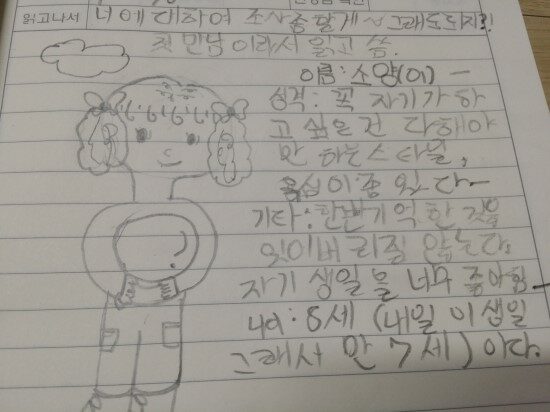 읽고나서
너에 대하여 조사좀 할게~ 그래도 되지?!
첫 만남이라서 읽고 씀.
이름: 소양(이) ㅡ
성격: 꼭 자기가 하
고 싶은 건 다 해야
만 하는 스타일,
욕심이 좀 있다ㅡ
기타: 한번 기억한 것은
잊어버리질 않는다.
자기 생일을 너무 좋아함ㅡ
나이: 8세 (내일이 생일
그래서 만 7세) 이다.